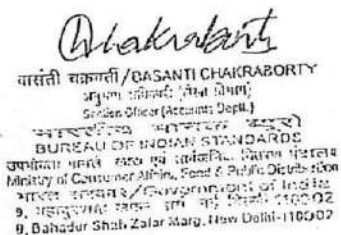 Chakraborty
वासंती चक्रवर्ती/BASANTI CHAKRABORTY
अनुभाग अधिकारी (लेखा विभाग)
Section Officer (Accounts Deptt.)
भारतीय मानक ब्यूरो
BUREAU OF INDIAN STANDARDS
उपभोक्ता मामले खाद्य एवं सार्वजनिक वितरण मंत्रालय
Ministry of Consumer Affairs, Food & Public Distribution
भारत सरकार/Government of India
9, बहादुरशाह जफर मार्ग नई दिल्ली-110002
9, Bahadur Shah Zafar Marg, New Delhi-110002